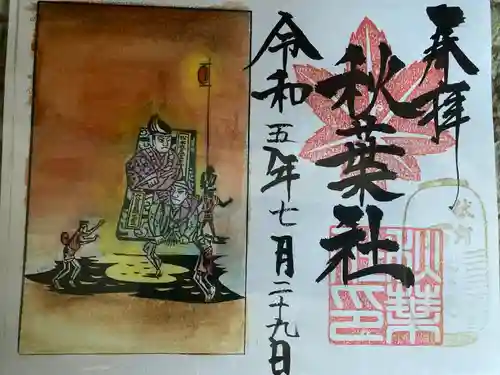 奉拝
秋葉社
令和五年七月二十九日
秋葉
社印